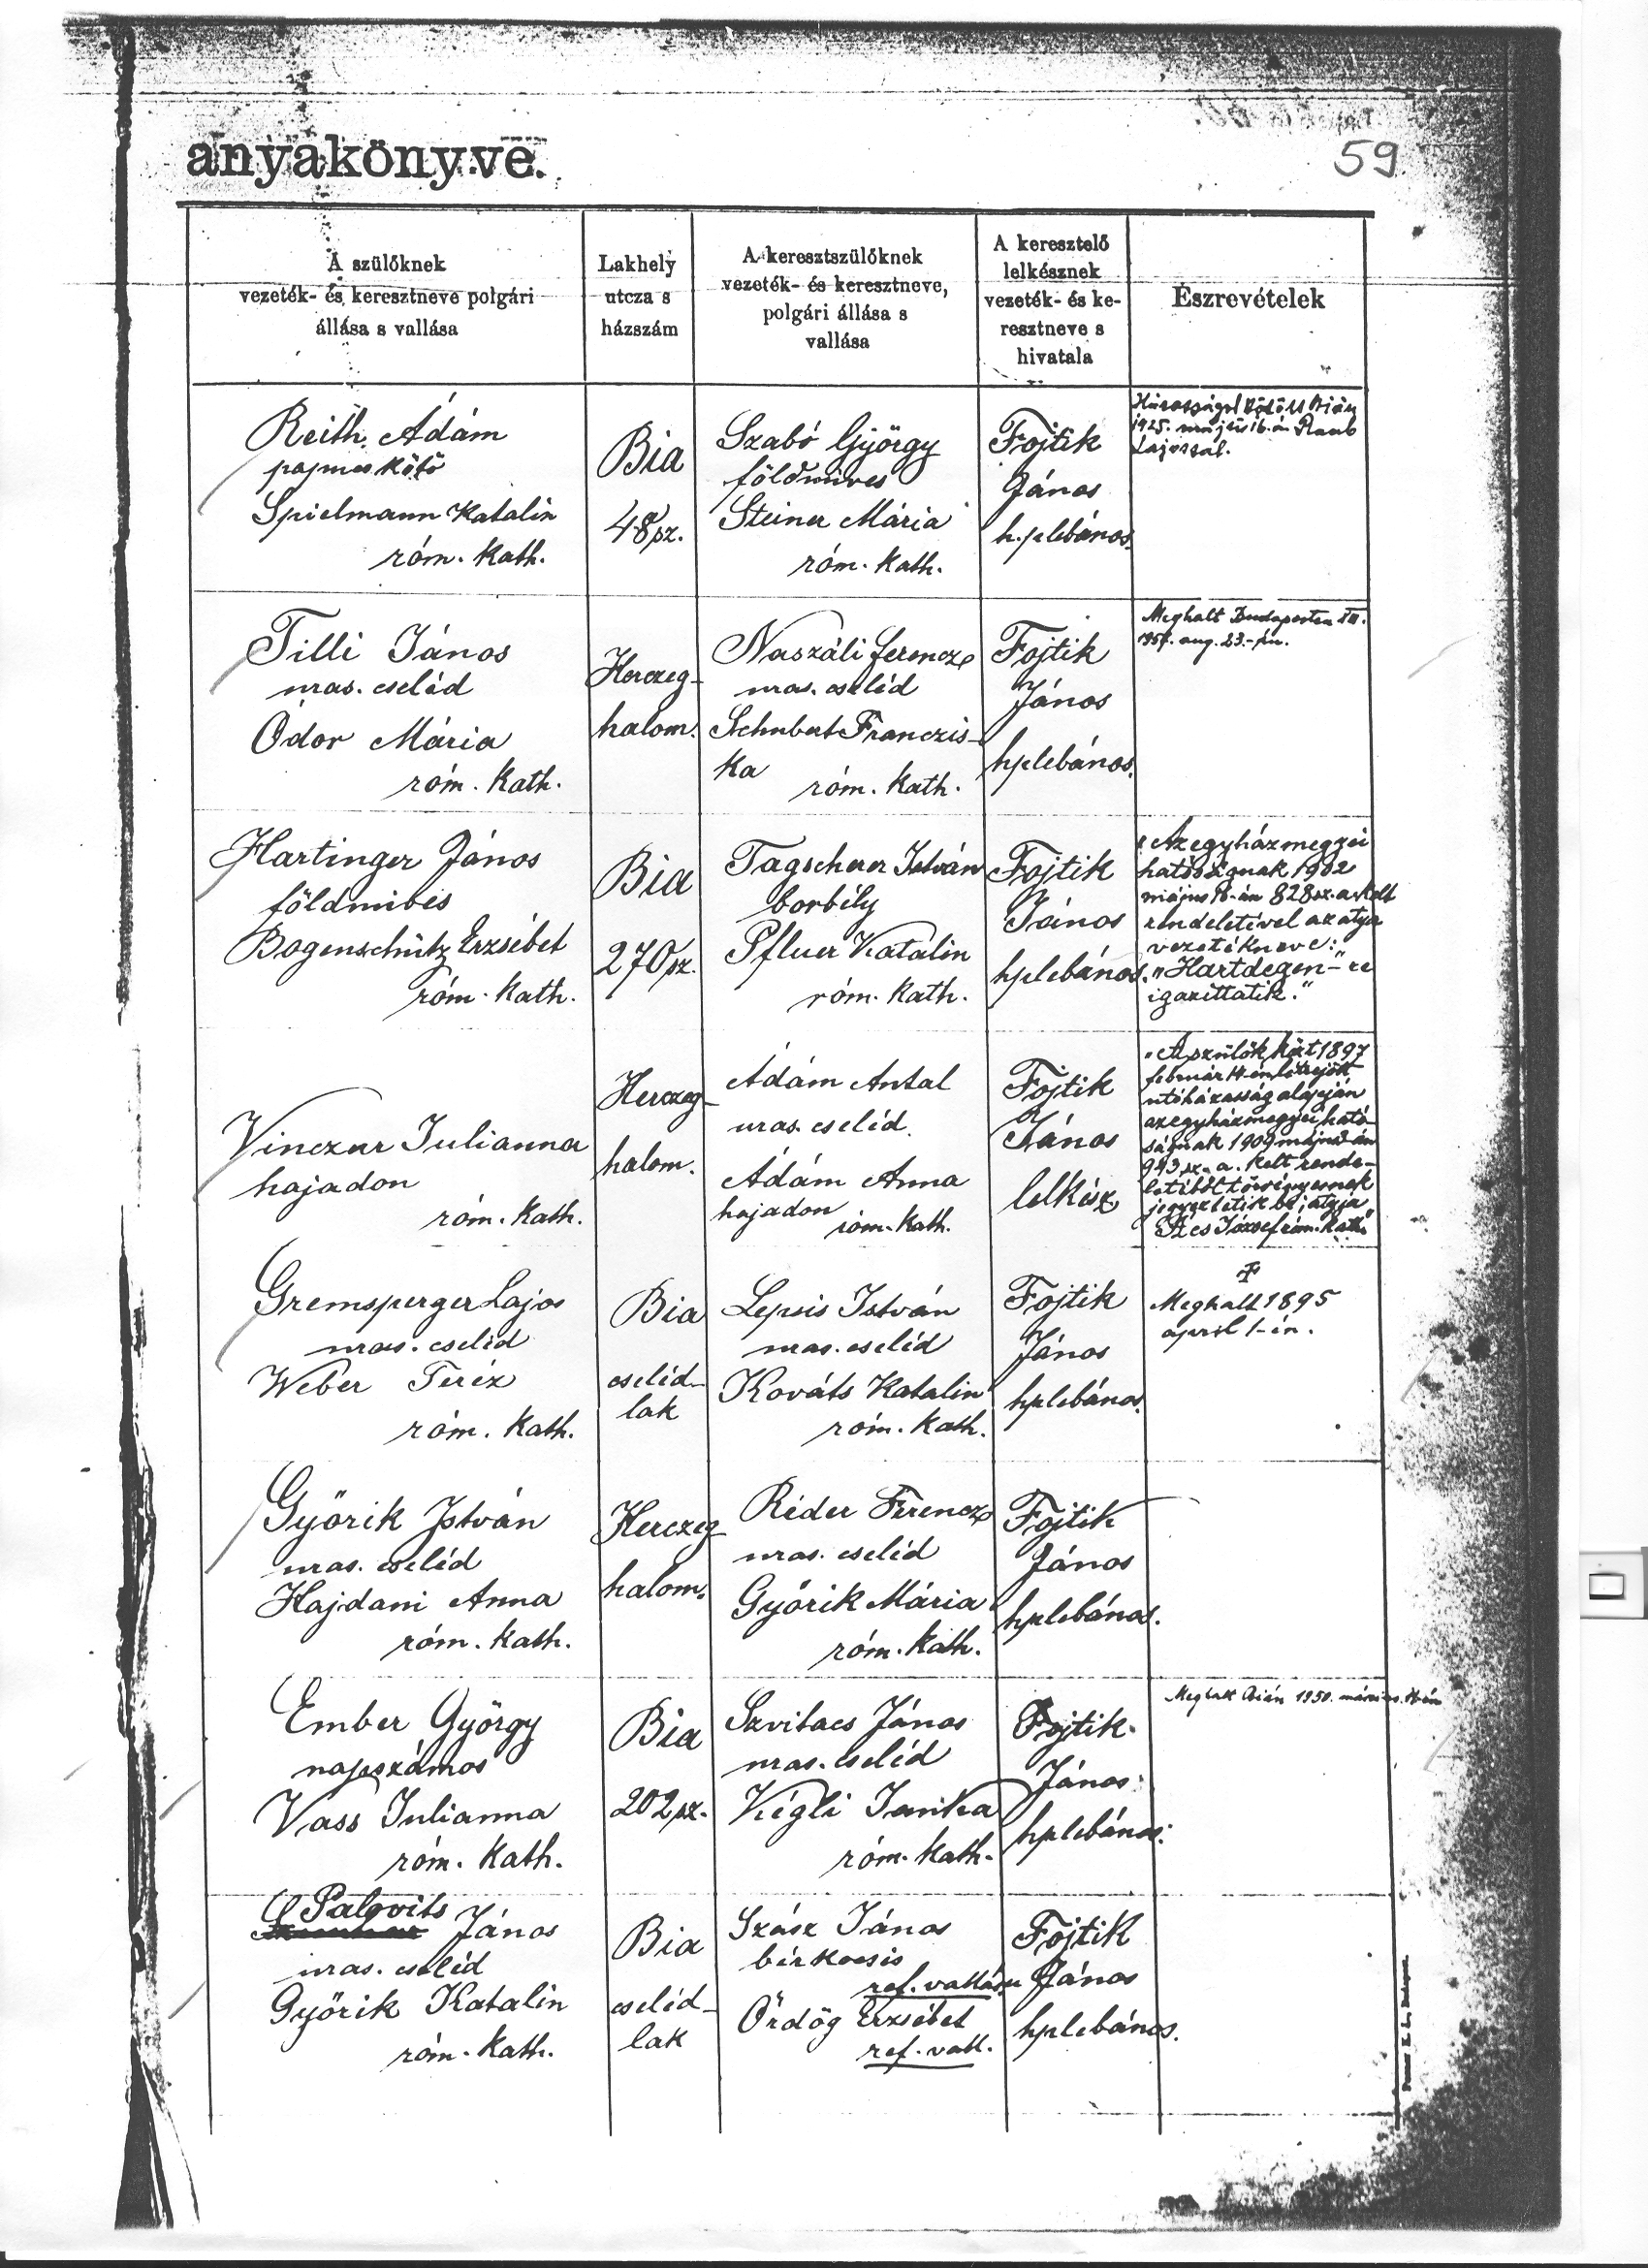 anyakönyve.
59
A szülőknek
vezeték- és keresztneve polgári
állása s vallása
Lakhely
utcza s
házszám
A keresztszülőknek
vezeték- és keresztneve,
polgári állása s
vallása
A keresztelő
lelkésznek
vezeték- és ke-
resztneve s
hivatala
Észrevételek
Reith Ádám
Spielmann Katalin
róm. kath.
Bia
48 sz.
Szabó György
földmives
Steiner Mária
róm. kath.
Fojtik
János
h. plebános.
Házasságot kötött Bián
1925. május 16-án Raab
Lajossal.
Tilli János
uras. cseléd
Ódor Mária
róm. kath.
Herczeg-
halom.
Naszáli Ferencz
uras. cseléd
Schubert Franczis-
ka
róm. kath.
Fojtik
János
hplebános.
Meghalt Budapesten XII.
aug. 23.-án.
Hartinger János
földmives
Bogenschütz Erzsébet
róm. kath.
Bia
270 sz.
Tagscherer István
borbély
Pfluer Katalin
róm. kath.
Fojtik
János
hplebános.
"Az egyházmegyei
hatóságnak 1902
május 16-án 828 sz. a. kelt
rendeletével az atya
vezetékneve:
"Hartdegen"-re
igazittatik."
Vinczur Julianna
hajadon
róm. kath.
Herczeg-
halom.
Ádám Antal
uras. cseléd.
Ádám Anna
hajadon
róm. kath.
Fojtik
János
lelkész
"A szülők közt 1897
február 14-én létrejött
utóházasság alapján
az egyházmegyei ható-
ságnak 1909
943 sz. a. kelt rende-
letéből törvényesnek
jegyeztetik be; atyja
Szücs József róm. kath."
Gremsperger Lajos
uras. cseléd
Weber Teréz
róm. kath.
Bia
cseléd-
lak
Lepsis István
uras. cseléd
Kováts Katalin
róm. kath.
Fojtik
János
hplebános.
Meghalt 1895
april 1-én.
Győrik István
uras. cseléd
Hajdani Anna
róm. kath.
Herczeg
halom.
Rider Ferencz
uras. cseléd
Győrik Mária
róm. kath.
Fojtik
János
hplebános.
Ember György
napszámos
Vass Julianna
róm. kath.
Bia
202 sz.
Szvitacs János
uras. cseléd
Kégli Janka
róm. kath.
Fojtik
János
hplebános.
Meghalt Bián 1950. március
Palovits
János
uras. cseléd
Győrik Katalin
róm. kath.
Bia
cseléd-
lak
Szász János
bérkocsis
ref. vallásu
Ördög Erzsébet
ref. vall.
Fojtik
János
hplebános.